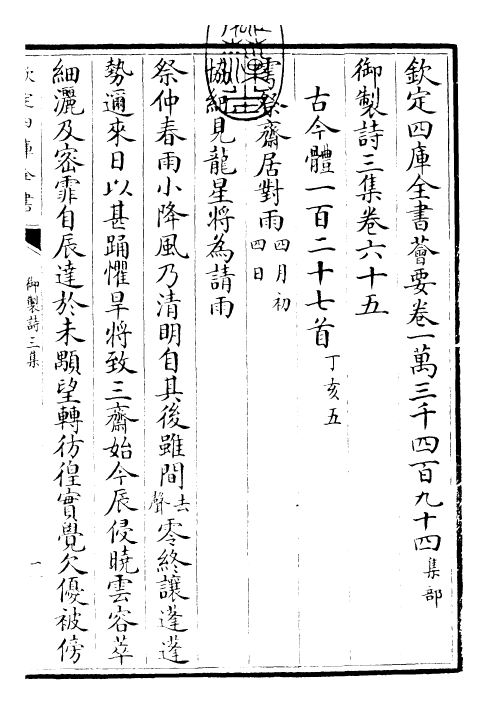 欽定四庫全書薈要卷一萬三千四百九十四集部
御製詩三集卷六十五
古今體一百二十七首丁亥五
雩祭齋居對雨四月初四日
協紀見龍星將為請雨
祭仲春雨小降風乃清明自其後雖間去聲零終讓蓬蓬
勢邇來日以甚踊懼旱將致三齋始今辰侵曉雲容萃
細灑及密霏自辰達於未顒望轉彷徨實覺欠優被傍
欽定四庫全書
御製詩三集
一